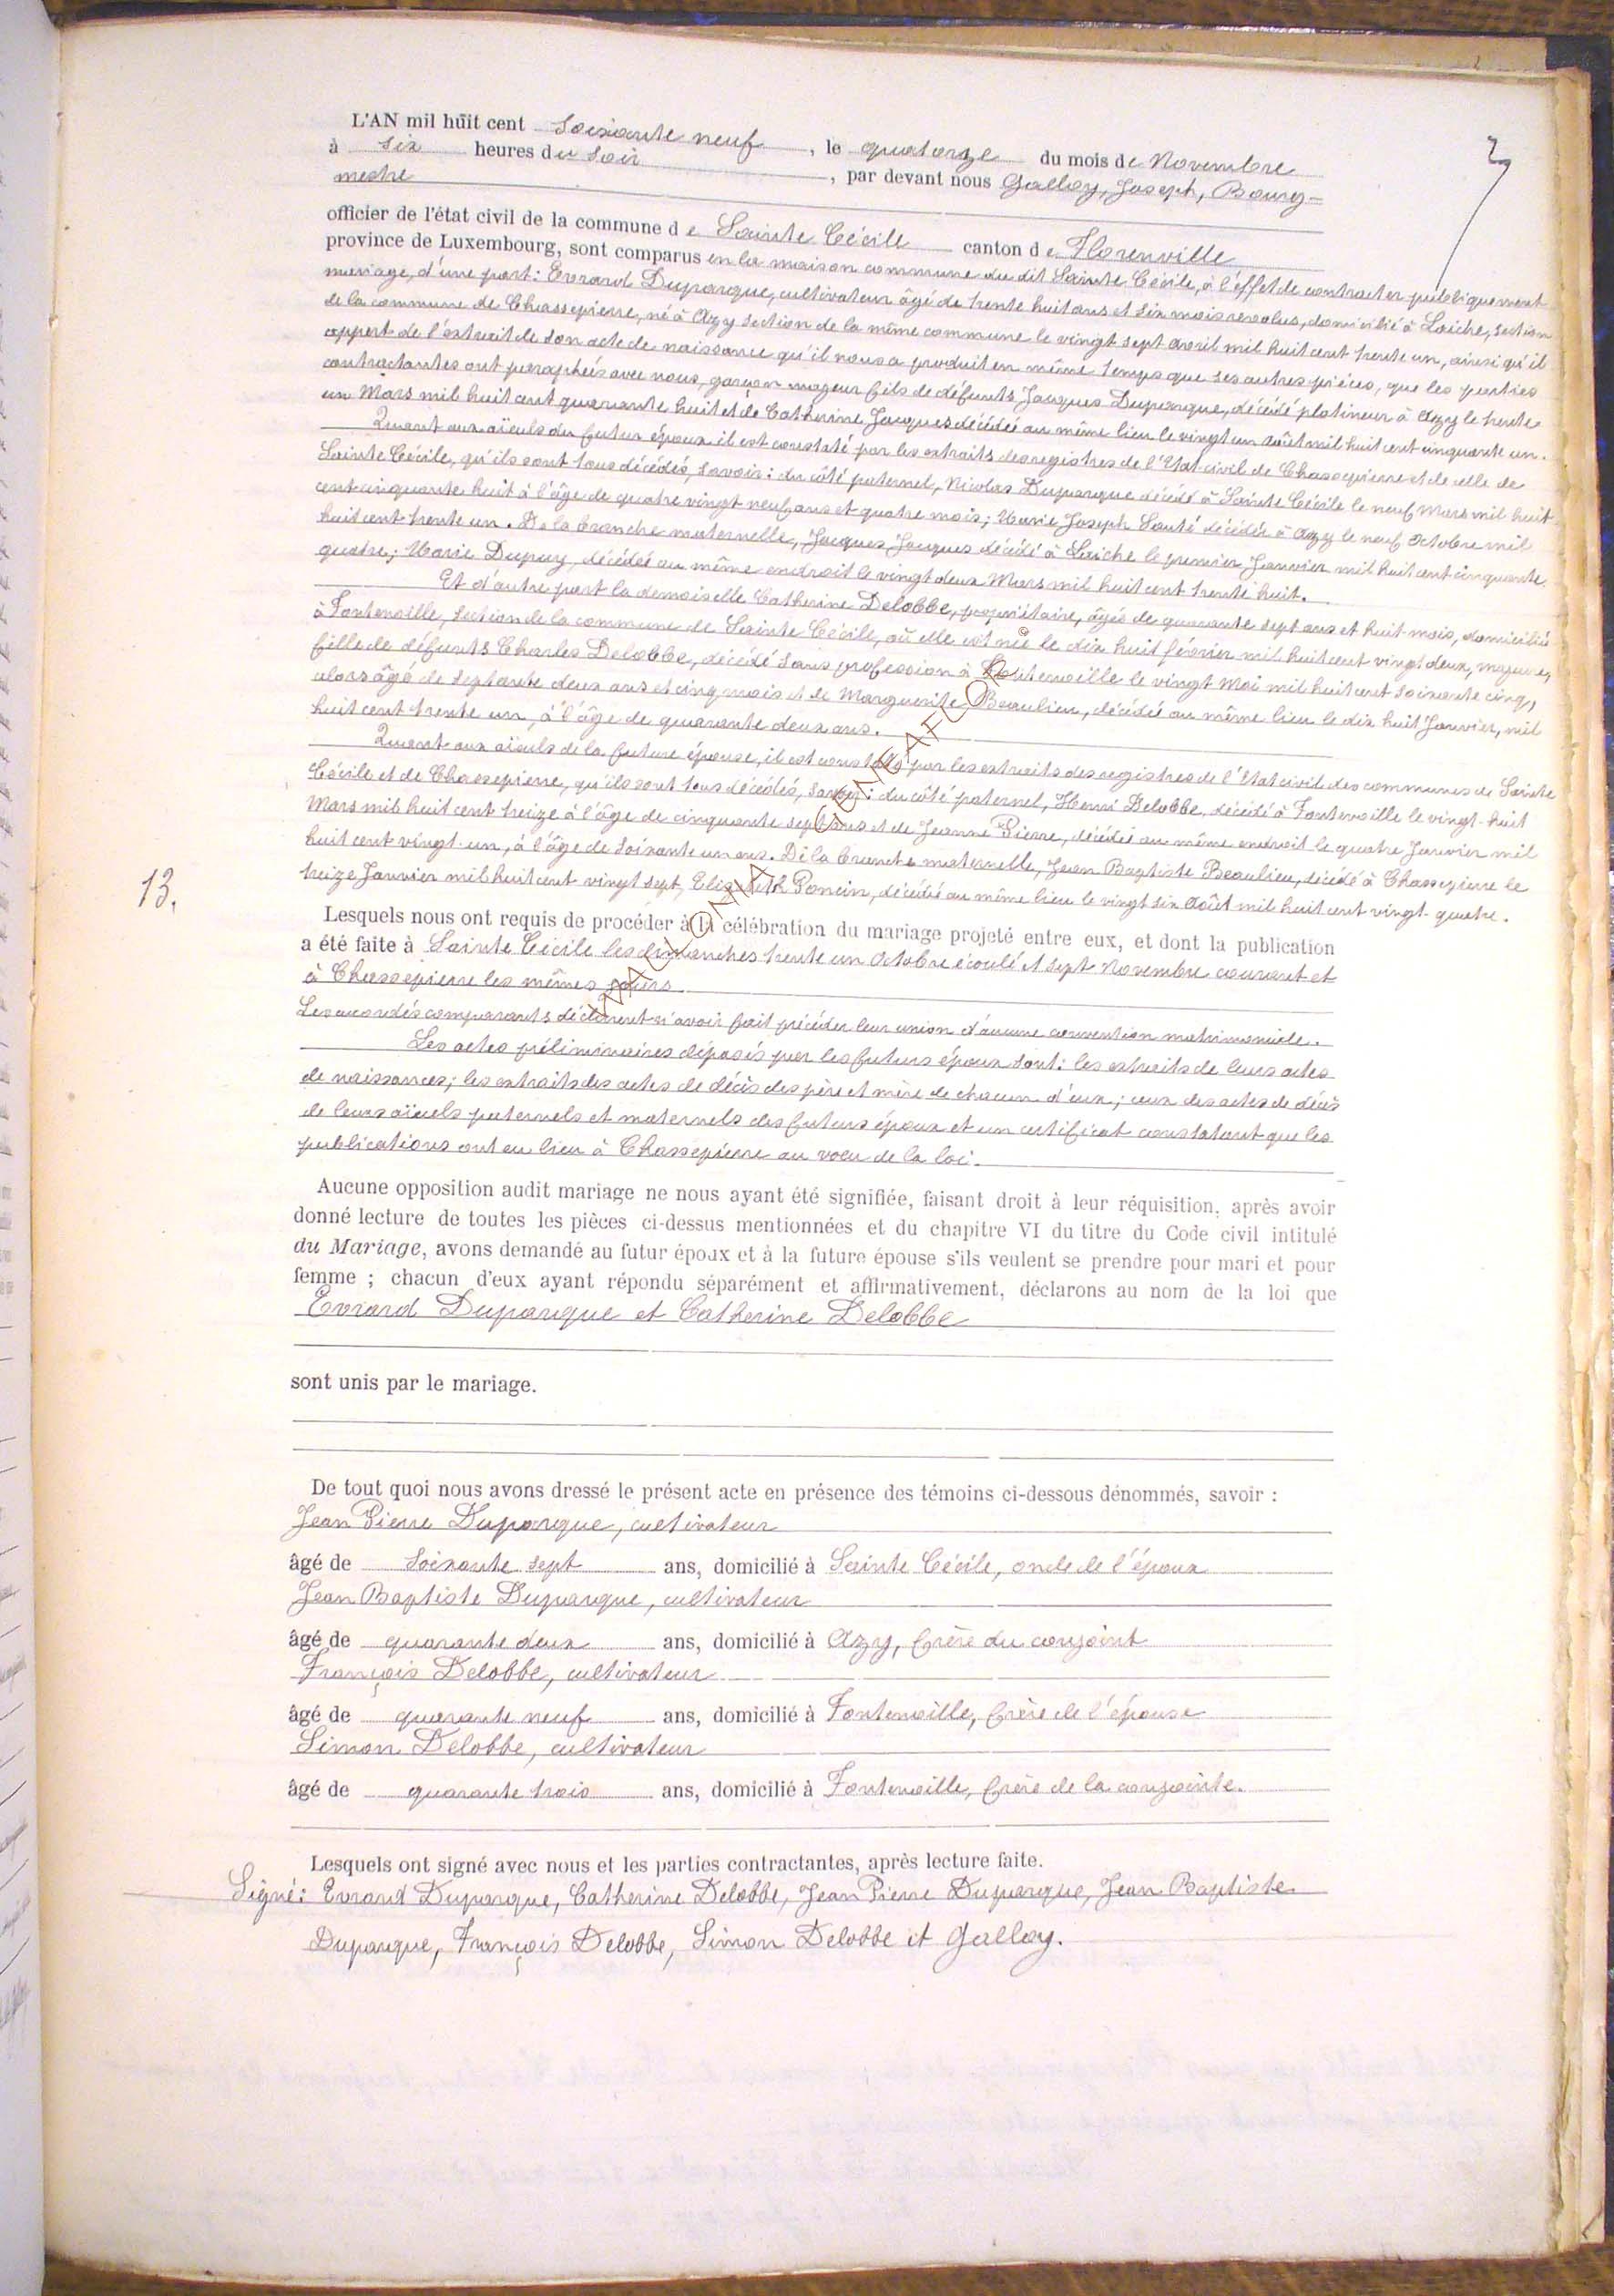 L'AN mil huit cent soixante neuf, le quatorze du mois de Novembre
à six heures du soir, par devant nous Galloy, Joseph, Bourg-
mestre
officier de l'état civil de la commune de Sainte Cécile canton de Florenville
province de Luxembourg, sont comparus en la maison commune du dit Sainte Cécile, à l'effet de contracter publiquement
mariage, d'une part: Evrard Duparque, cultivateur âgé de trente huit ans et six mois revolus, domicilié à Laiche, section
de la commune de Chassepierre, né à Azy section de la même commune le vingt sept avril mil huit cent trente un, ainsi qu'il
appert de l'extrait de son acte de naissance qu'il nous a produit en même temps que ses autres pièces, que les parties
contractantes ont paraphées avec nous, garçon majeur fils de défunts Jacques Duparque, décédé platineur à Azy le trente
un Mars mil huit cent quarante huit et de Catherine Jacques décédée au même lieu le vingt un août mil huit cent cinquante un.
Quant aux aïeuls du futur époux il est constaté par les extraits des registres de l'Etat civil de Chassepierre et de celle de
Sainte Cécile, qu'ils sont tous décédés, savoir: du côté paternel, Nicolas Duparque décédé à Sainte Cécile le neuf Mars mil huit
cent cinquante huit à l'âge de quatre vingt neuf ans et quatre mois; Marie Joseph Santé décédée à Azy le neuf Octobre mil
huit cent trente un. De la branche maternelle, Jacques Jacques décédé à Laiche le premier Janvier mil huit cent cinquante
quatre; Marie Dupuy, décédée au même endroit le vingt deux Mars mil huit cent trente huit.
Et d'autre part la demoiselle Catherine Delobbe, propriétaire, âgée de quarante sept ans et huit mois, domiciliée
à Fontenoille, section de la commune de Sainte Cécile, où elle est née le dix huit février mil huit cent vingt deux, majeure,
fille de défunts Charles Delobbe, décédé sans profession à Fontenoille le vingt Mai mil huit cent soixante cinq,
alors âgé de septante deux ans et cinq mois et de Marguerite Beaulieu, décédée au même lieu le dix huit Janvier, mil
huit cent trente un, à l'âge de quarante deux ans.
Quant aux aïeuls de la future épouse, il est constaté par les extraits des registres de l'Etat civil des communes de Sainte
Cécile et de Chassepierre, qu'ils sont tous décédés, savoir: du côté paternel, Henri Delobbe, décédé à Fontenoille le vingt-huit
Mars mil huit cent treize à l'âge de cinquante sept ans et de Jeanne Pierre, décédée au même endroit le quatre Janvier mil
huit cent vingt-un, à l'âge de soixante un ans. De la branche maternelle, Jean Baptiste Beaulieu, décédé à Chassepierre le
treize Janvier mil huit cent vingt sept, Elisabeth Poncin, décédée au même lieu le vingt six Août mil huit cent vingt-quatre.
13.
Lesquels nous ont requis de procéder à la célébration du mariage projeté entre eux, et dont la publication
a été faite à Sainte Cécile les dimanches trente un Octobre écoulé et sept Novembre courant et
à Chassepierre les mêmes jours
Les accordés comparants déclarent n'avoir fait précéder leur union d'aucune convention matrimoniale.
Les actes préliminaires déposés par les futurs époux sont: les extraits de leurs actes
de naissances; les extraits des actes de décès des père et mère de chacun d'eux; ceux des actes de décès
de leurs aïeuls paternels et maternels des futurs époux et un certificat constatant que les
publications ont eu lieu à Chassepierre au voeu de la loi.
Aucune opposition audit mariage ne nous ayant été signifiée, faisant droit à leur réquisition, après avoir
donné lecture de toutes les pièces ci-dessus mentionnées et du chapitre VI du titre du Code civil intitulé
du Mariage, avons demandé au futur époux et à la future épouse s'ils veulent se prendre pour mari et pour
femme ; chacun d'eux ayant répondu séparément et affirmativement, déclarons au nom de la loi que
Evrard Duparque et Catherine Delobbe
sont unis par le mariage.
De tout quoi nous avons dressé le présent acte en présence des témoins ci-dessous dénommés, savoir :
Jean Pierre Duparque, cultivateur
âgé de soixante sept ans, domicilié à Sainte Cécile, oncle de l'époux
Jean Baptiste Duparque, cultivateur
âgé de quarante deux ans, domicilié à Azy, frère du conjoint
François Delobbe, cultivateur
âgé de quarante neuf ans, domicilié à Fontenoille, frère de l'épouse
Simon Delobbe, cultivateur
âgé de quarante trois ans, domicilié à Fontenoille, frère de la conjointe.
Lesquels ont signé avec nous et les parties contractantes, après lecture faite.
Signé: Evrard Duparque, Catherine Delobbe, Jean Pierre Duparque, Jean Baptiste
Duparque, François Delobbe, Simon Delobbe et Galloy.